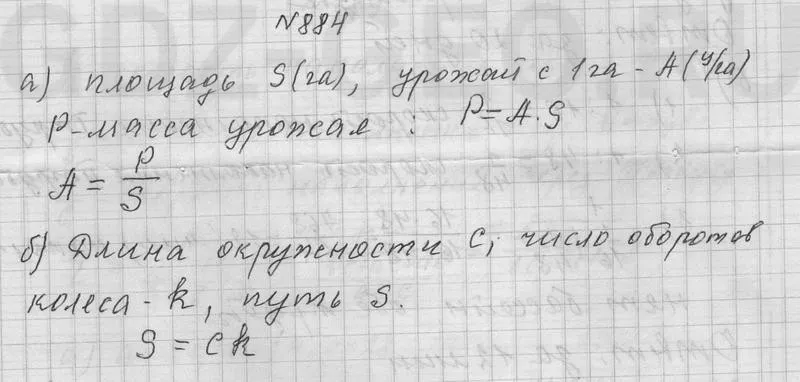 №884
а) площадь S(га), урожай с 1га - A(ц/га)
P-масса урожая : P=A·S
A = P/S
б) Длина окружности C; число оборотов
колеса - k, путь S.
S = Ck